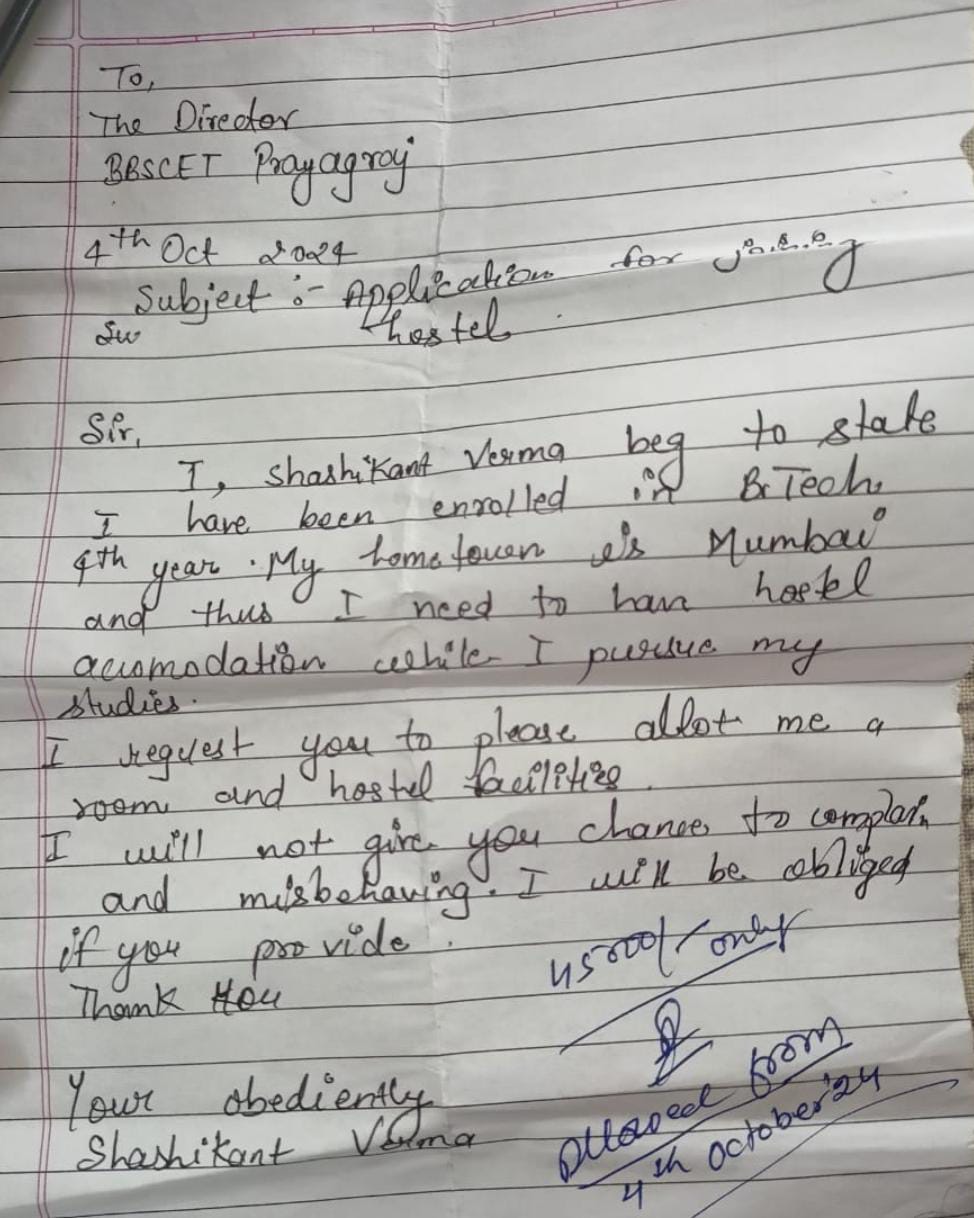 To,
The Director
BBSCET Prayagraj
4th Oct 2024
Subject :- Application for joining
hostel
Sir,
I, Shashikant Verma beg to state
I have been enrolled in B.Tech.
4th year. My hometown is Mumbai
and thus I need to have hostel
accomodation while I pursue my
studies.
I request you to please allot me a
room and hostel facilities.
I will not give you chance to complain
and misbehaving. I will be obliged
if you provide.
Thank You
45000/- only
Your obediently
Shashikant Verma
Allowed from
4th October'24